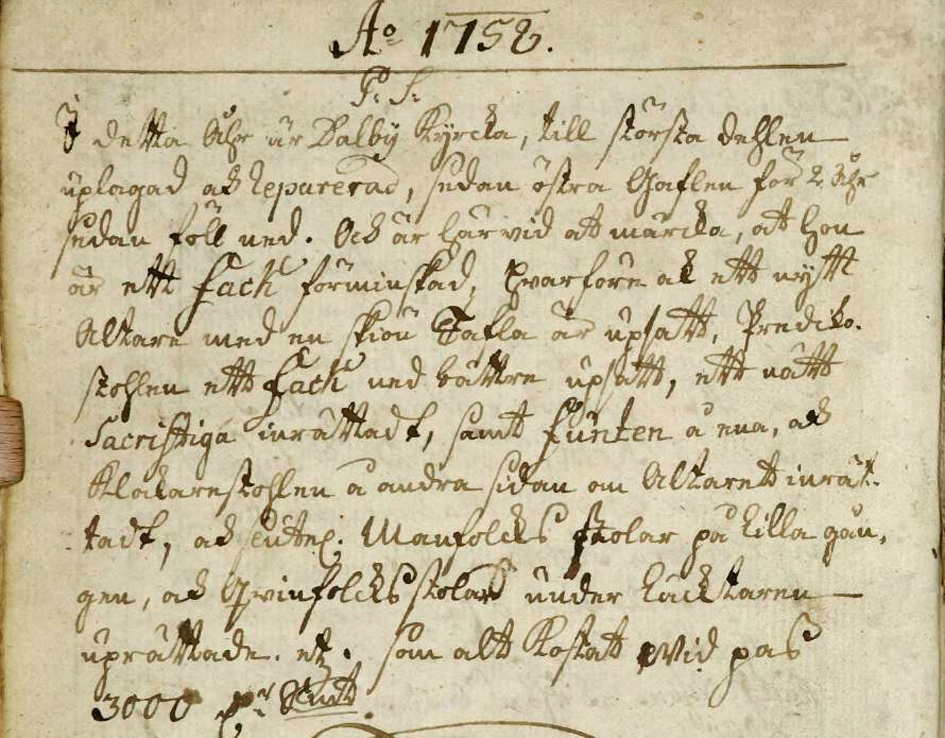 Ao 1758.
P. S.
I detta Åhr är Dalby Kÿrcka, till största dehlen
uplagad ock reparerad, sedan östra Gaflen för 2 Åhr
sedan föll ned. Ock är härvid at märcka, at hon
är ett fach förminskad, hvarföre ock ett nytt
Altare med en skiön Tafla är upsatt, Predicko-
stohlen ett fach ned bättre upsatt, ett nätt
Sacristiga inrättadt, samt funten å ena, ock
Klokarestohlen å andra sidan om Altarett inrät-
tadt, ock Manfolcks stolar på lilla gån-
gen, ock Qvinfolcks stolar under Läcktaren
uprättade. etz. som alt Kostatt vid pas
3000 Smt